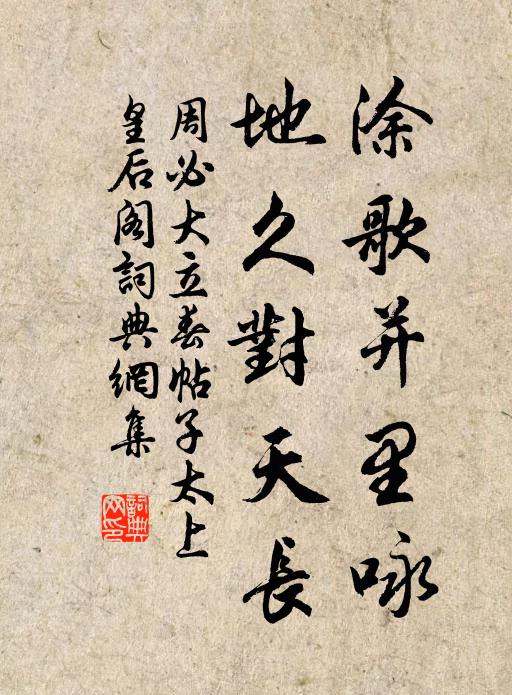 涂歌并里咏
地久對天長
周必大立春帖子太上
皇后阁詞典網集
詞典網印